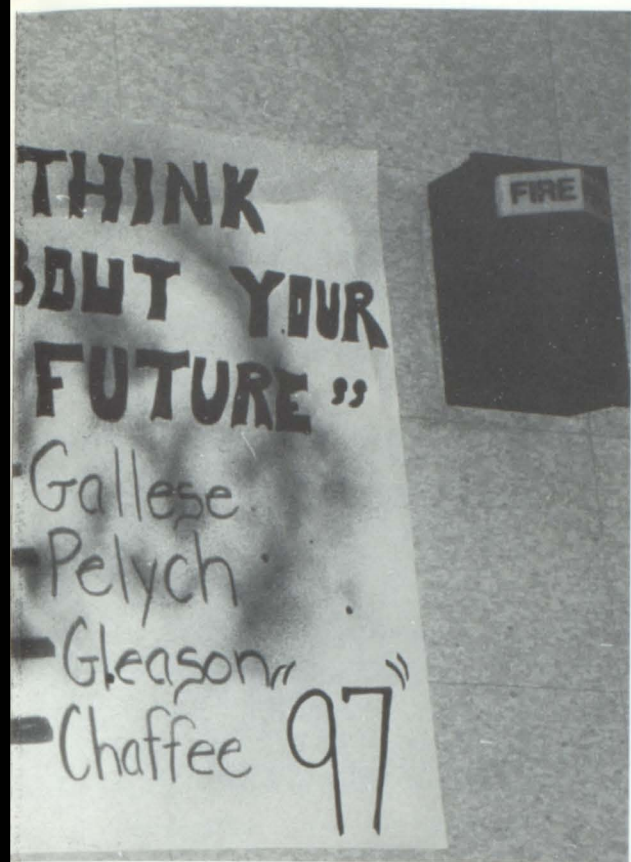 THINK
BOUT YOUR
FUTURE”
-Gallese
-Pelych
-Gleason
-Chaffee “97”
FIRE